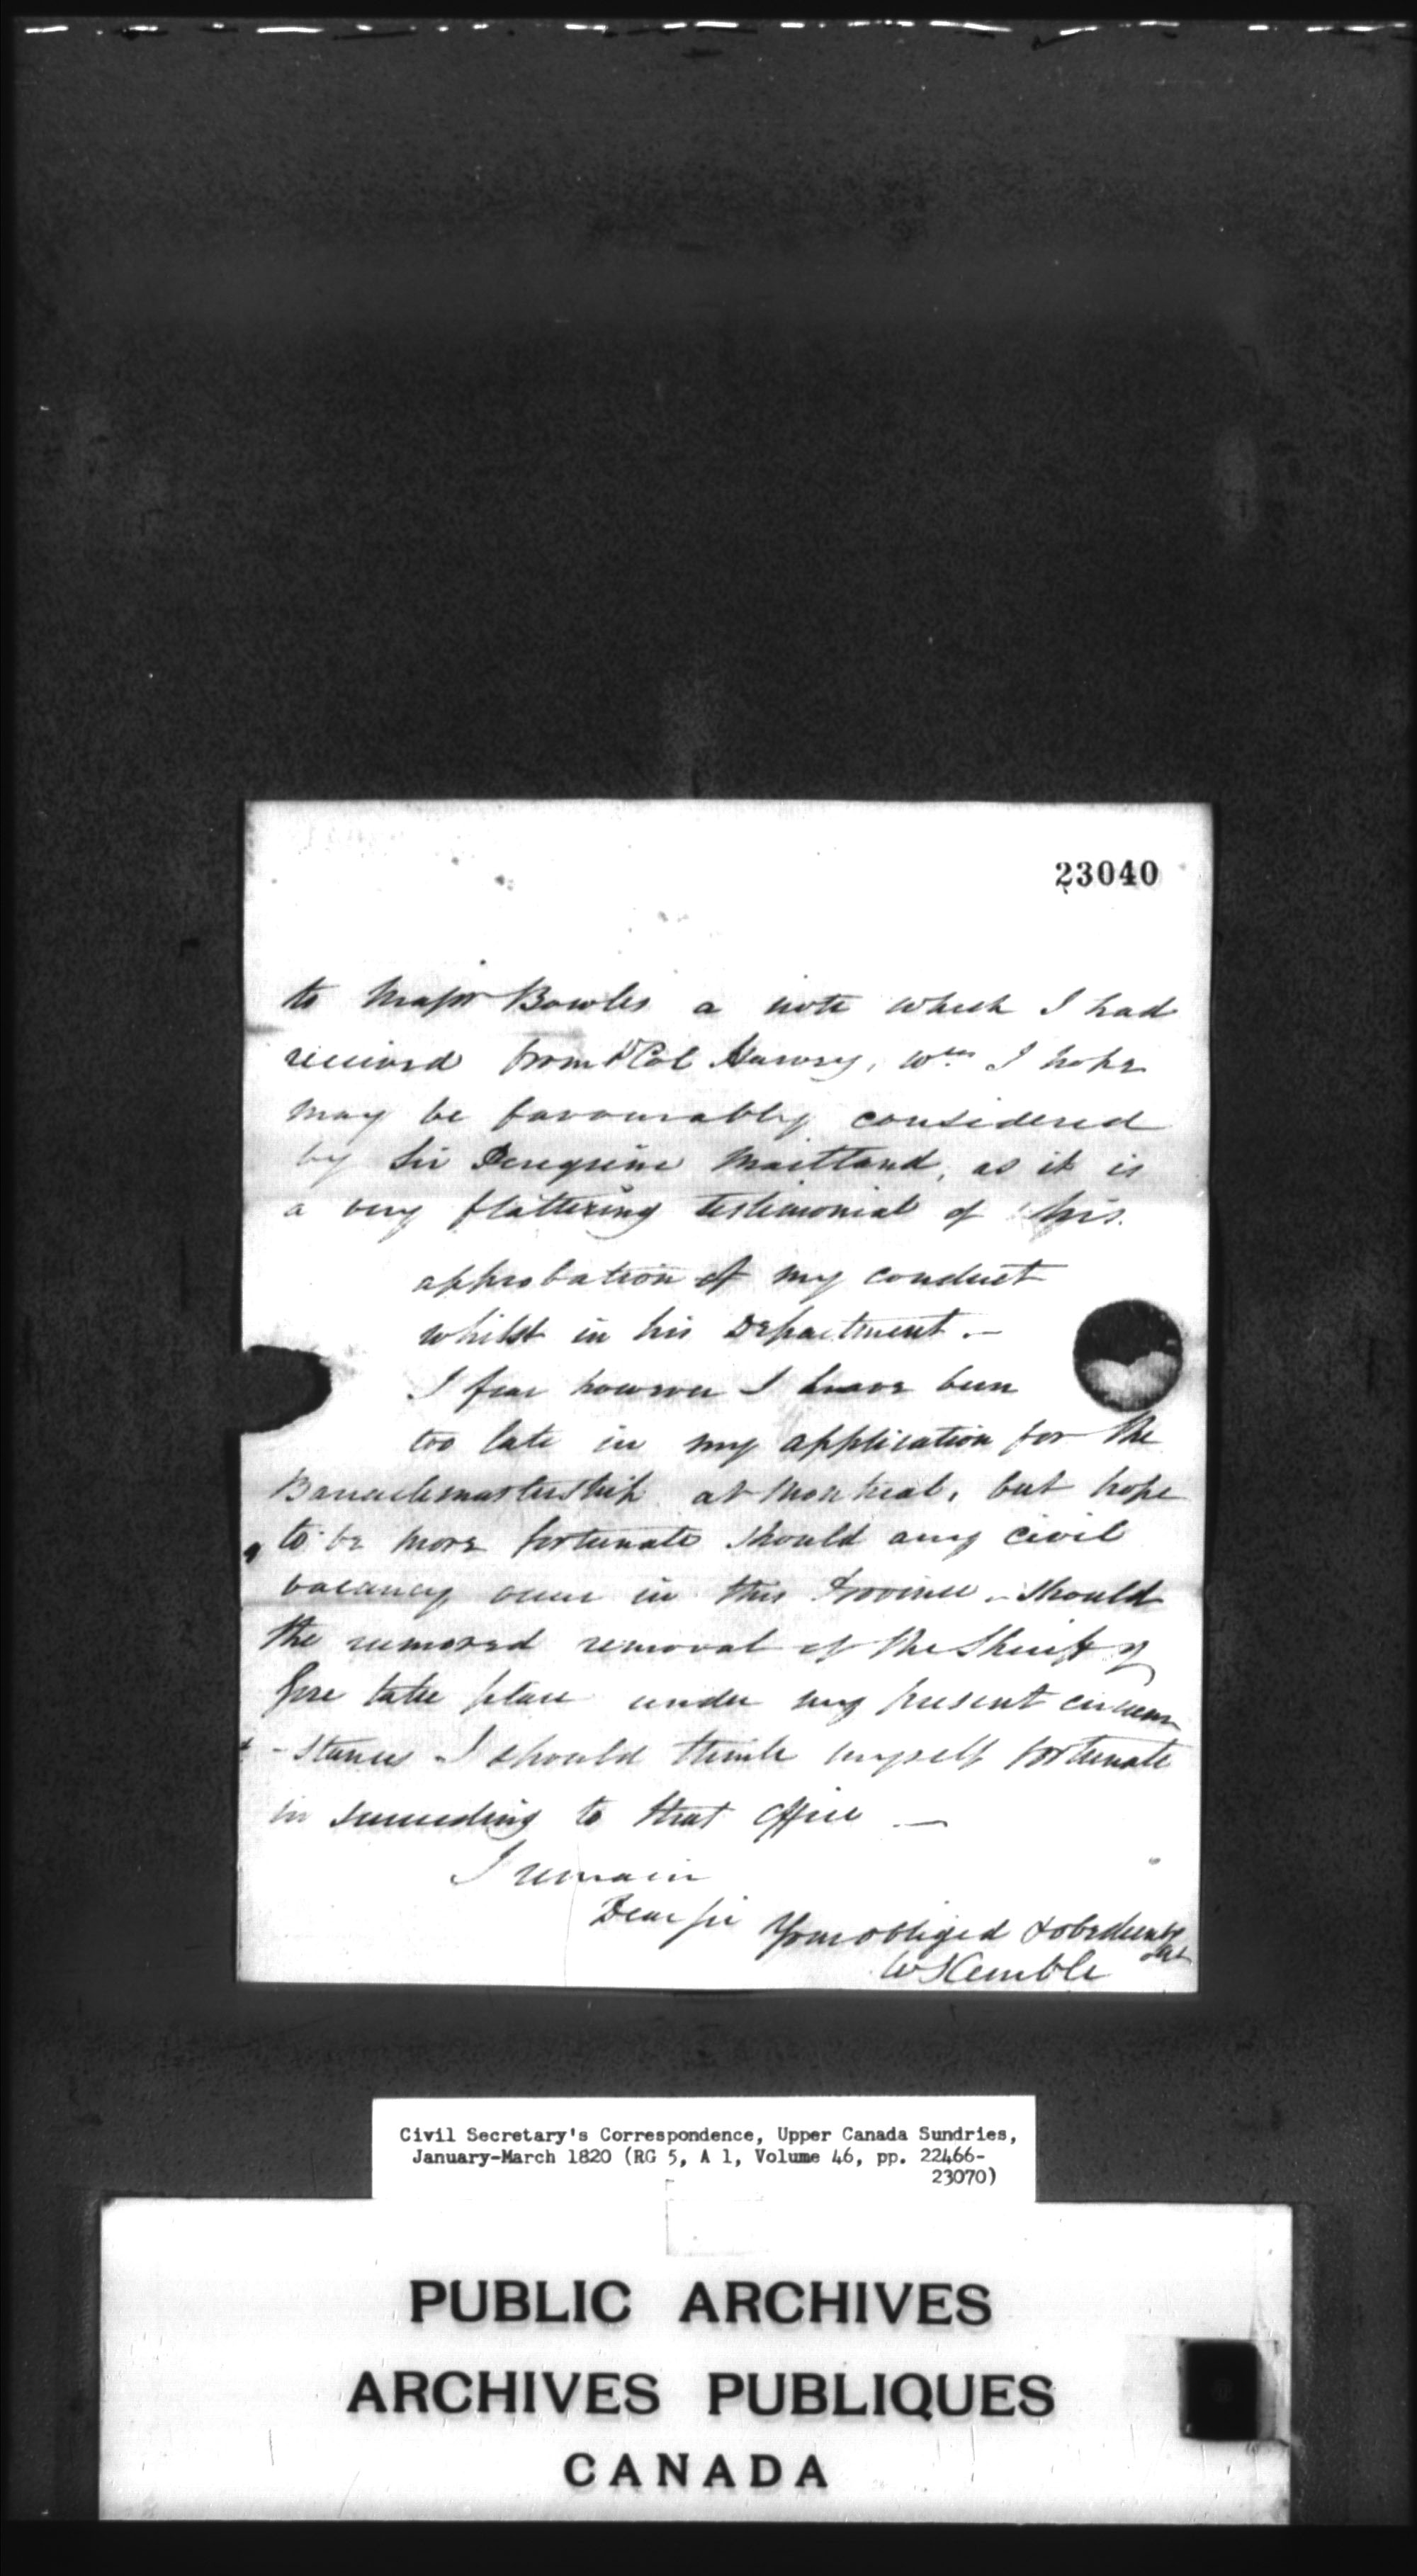 23040
to Major Bowles a note which I had
received from Lt Col Harvey, wch I hope
may be favourably considered
by Sir Peregrine Maitland, as it is
a very flattering testimonial of his
approbation of my conduct
whilst in his Department.—
I fear however I have been
too late in my application for the
Barrackmastership at Montreal, but hope
to be more fortunate should any civil
vacancy occur in this Province – should
the rumored removal of the Sheriff of
Gore take place under my present circum
-stances I should think myself fortunate
in succeeding to that office —
I remain
Dear Sir Your obliged & obedient
W Kemble
Civil Secretary's Correspondence, Upper Canada Sundries,
January-March 1820 (RG 5, A 1, Volume 46, pp. 22466-
23070)
PUBLIC ARCHIVES
ARCHIVES PUBLIQUES
CANADA